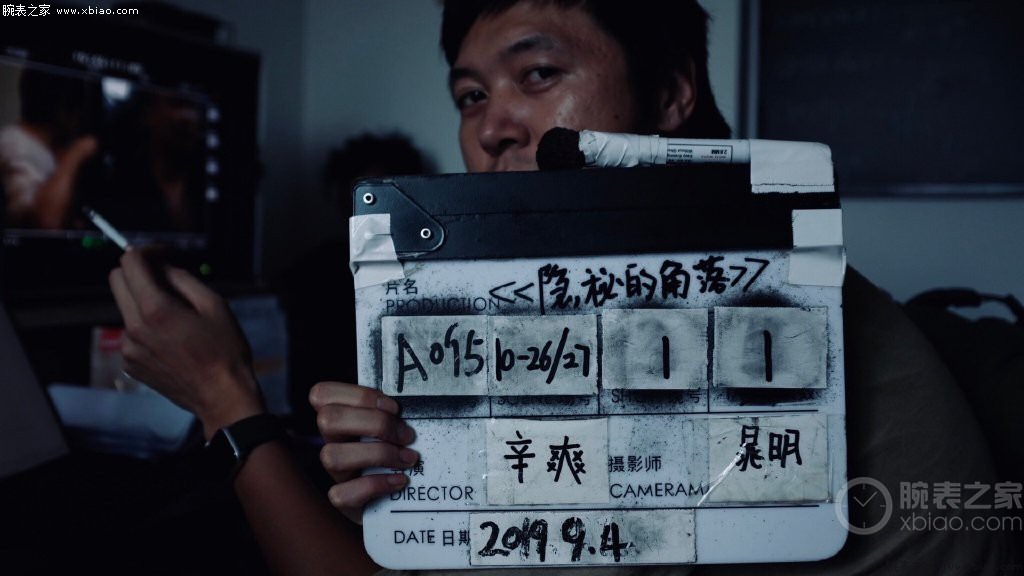 腕表之家 www.xbiao.com
片名 <<隐秘的角落>>
PRODUCTION
A095 10-26/27 1 1
辛爽 摄影师 晁明
DIRECTOR CAMERAM
DATE 日期 2019 9.4
腕表之家
xbiao.com